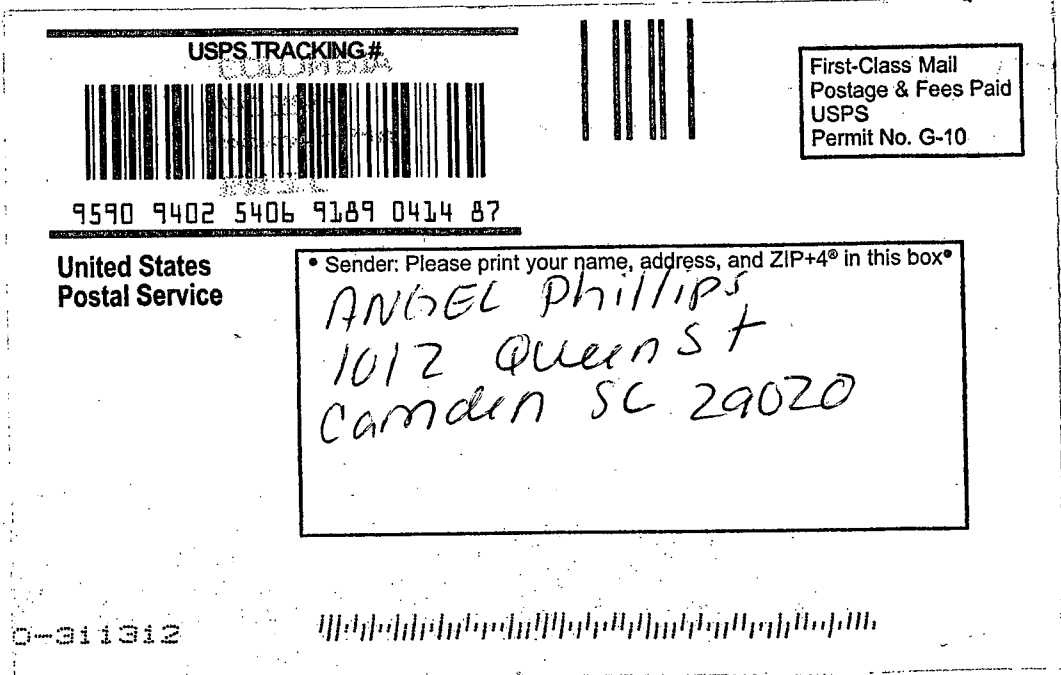 USPS TRACKING#
COLUMBIA
9590 9402 5406 9189 0414 87
First-Class Mail
Postage & Fees Paid
USPS
Permit No. G-10
United States
Postal Service
• Sender: Please print your name, address, and ZIP+4® in this box•
ANGEL Phillips
1012 Queen St
Camden SC 29020
0-311312